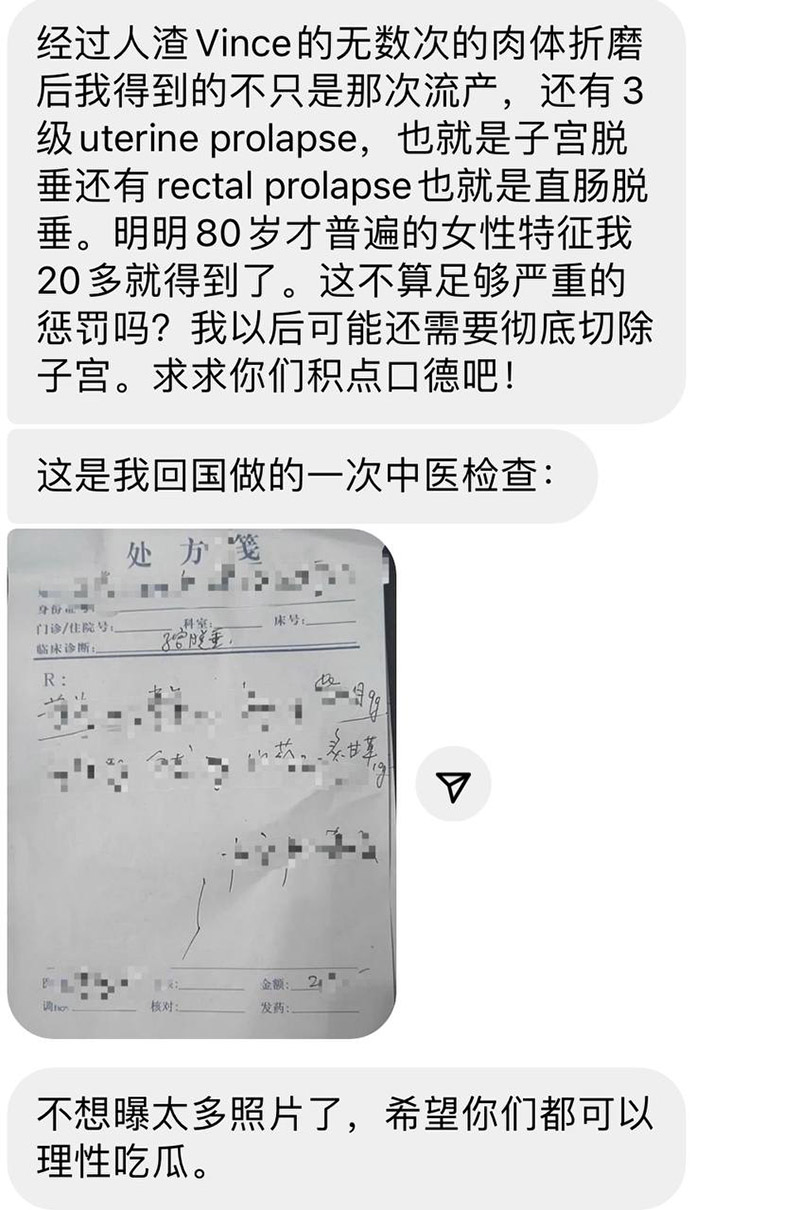 经过人渣Vince的无数次的肉体折磨
后我得到的不只是那次流产，还有3
级uterine prolapse，也就是子宫脱
垂还有rectal prolapse也就是直肠脱
垂。明明80岁才普遍的女性特征我
20多就得到了。这不算足够严重的
惩罚吗？我以后可能还需要彻底切除
子宫。求求你们积点口德吧！
这是我回国做的一次中医检查：
处方笺
门诊/住院号： 科室： 床号：
临床诊断： 子宫脱垂
R：
9g
炙甘草
金额：
核对： 发药：
不想曝太多照片了，希望你们都可以
理性吃瓜。